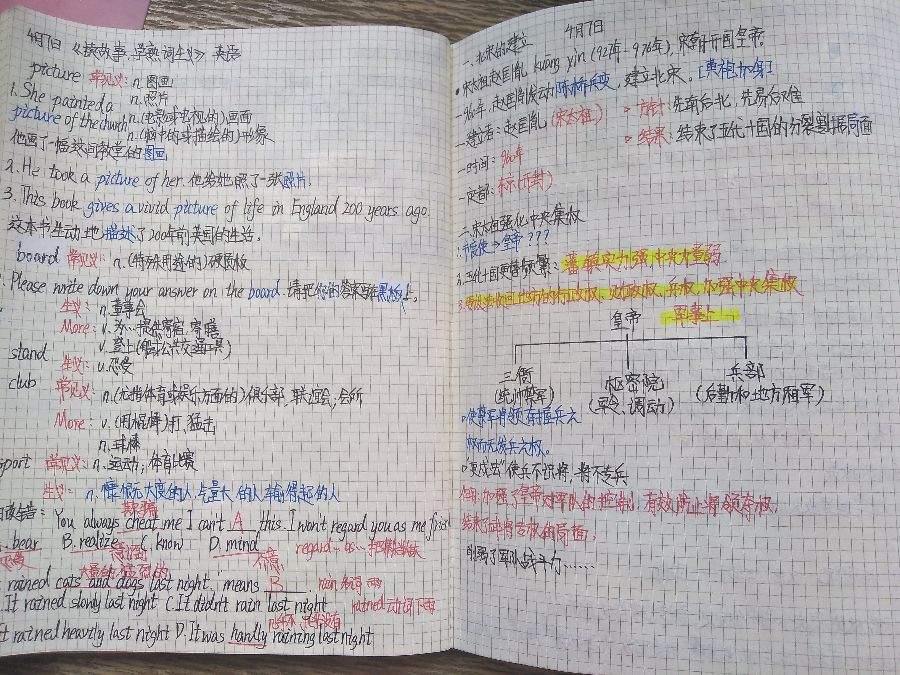 4月7日《读故事,学熟词生义》英语
picture 常见义: n.图画
n.照片
1. She painted a n.(电影或电视的)画面
picture of the church n.(脑中的或描绘的)形象
他画了一幅这间教堂的图画
2. He took a picture of her. 他给她照了一张照片.
3. This book gives a vivid picture of life in England 200 years ago.
这本书生动地描述了200年前英国的生活。
board 常见义: n.(特殊用途的)硬质板
Please write down your answer on the board. 请把你的答案写在黑板上。
生义: n.董事会
More: v. 为…提供寄宿、寄膳
v.登上(船或公共交通工具)
stand 生义: v.忍受
club 常见义: n.(尤指体育或娱乐方面的)俱乐部,联谊会,会所
More: v.(用棍棒)打,猛击
n.球棒
sport 常见义: n.运动;体育比赛
生义: n.慷慨大度的人,气量大的人,输得起的人
欺骗
You always cheat me I can't A this. I won't regard you as me first
bear B. realize C. know D. mind regard…as…把…当做
忍受 意识到 介意
大量的猛烈的
rained cats and dogs last night. means B. rain名词 雨
It rained slowly last night C. It didn't rain last night rained动词下雨
几乎不
It rained heavily last night D. It was hardly raining last night
4月7日
一、北宋的建立
宋太祖赵匡胤 kuang yin (927年-976年),宋朝开国皇帝。
-960年,赵匡胤发动陈桥兵变,建立北宋。[黄袍加身]
-建立者: 赵匡胤 (宋太祖) 方针: 先南后北,先易后难
-时间: 960年 结果: 结束了五代十国的分裂割据局面
-定都: 东京(开封)
二、宋太祖强化中央集权
1.节度使→皇帝???
2.五代十国更替频繁: 藩镇实力强,中央力量弱
加强中央集权
皇帝 军事上
三衙 枢密院 兵部
(统帅禁军) (军令、调动) (后勤和地方厢军)
使禁军将领有握兵之
权而无发兵之权。
"更戍法"使兵不识将,将不专兵
作用:加强了皇帝对军队的控制,有效防止将领夺权,
结束了武将专权的局面;
削弱了军队战斗力……